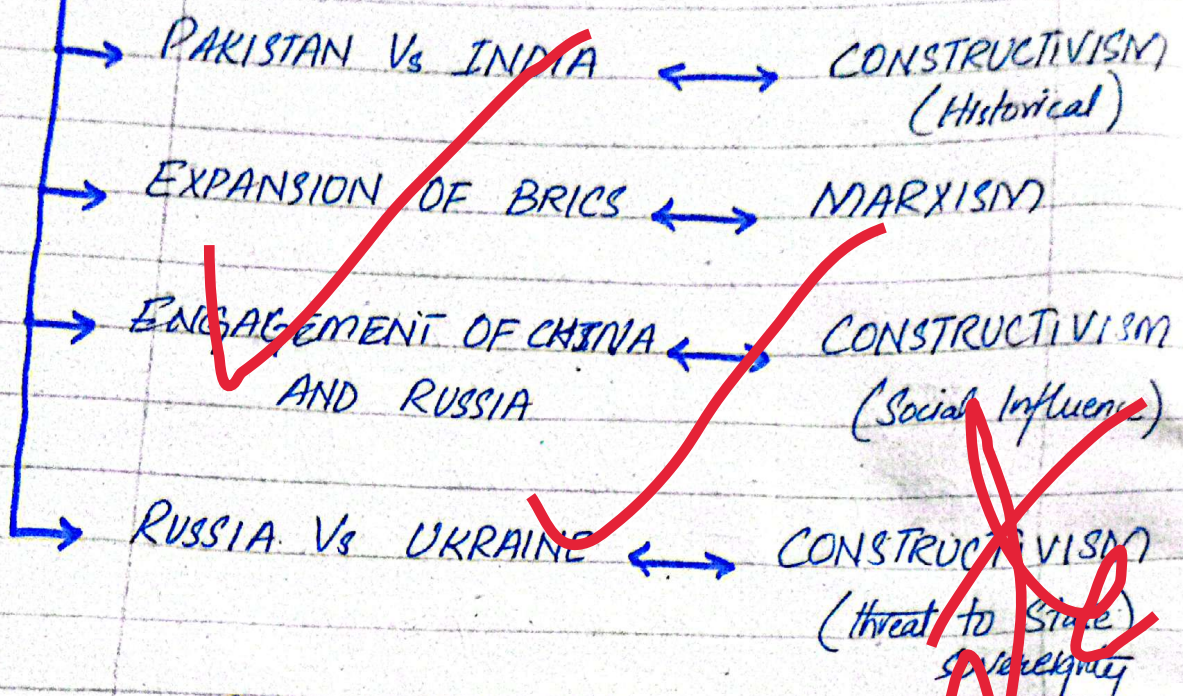 PAKISTAN Vs INDIA ↔ CONSTRUCTIVISM
(Historical)
EXPANSION OF BRICS ↔ MARXISM
ENGAGEMENT OF CHINA ↔ CONSTRUCTIVISM
AND RUSSIA (Social Influence)
RUSSIA Vs UKRAINE ↔ CONSTRUCTIVISM
(threat to State)
sovereignty